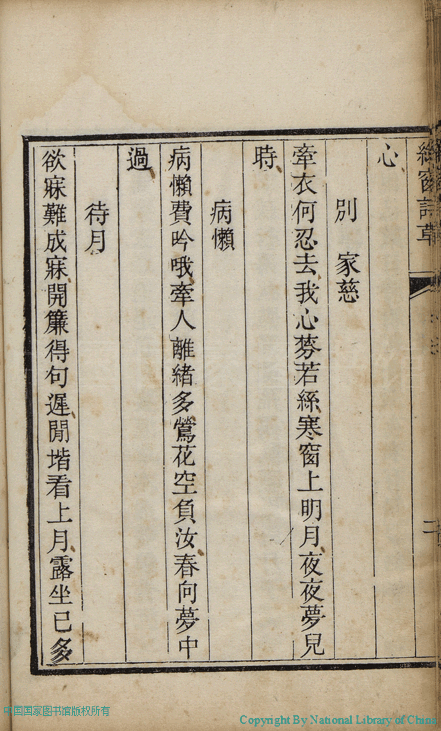 窗詩草
二
心
別家慈
牽衣何忍去我心棼若絲寒窗上明月夜夜夢兒
時
病懶
病懶費吟哦牽人離緒多鶯花空負汝春向夢中
過
待月
欲寐難成寐開簾得句遲閒堦看上月露坐已多
中国国家图书馆版权所有
Copyright By National Library of China